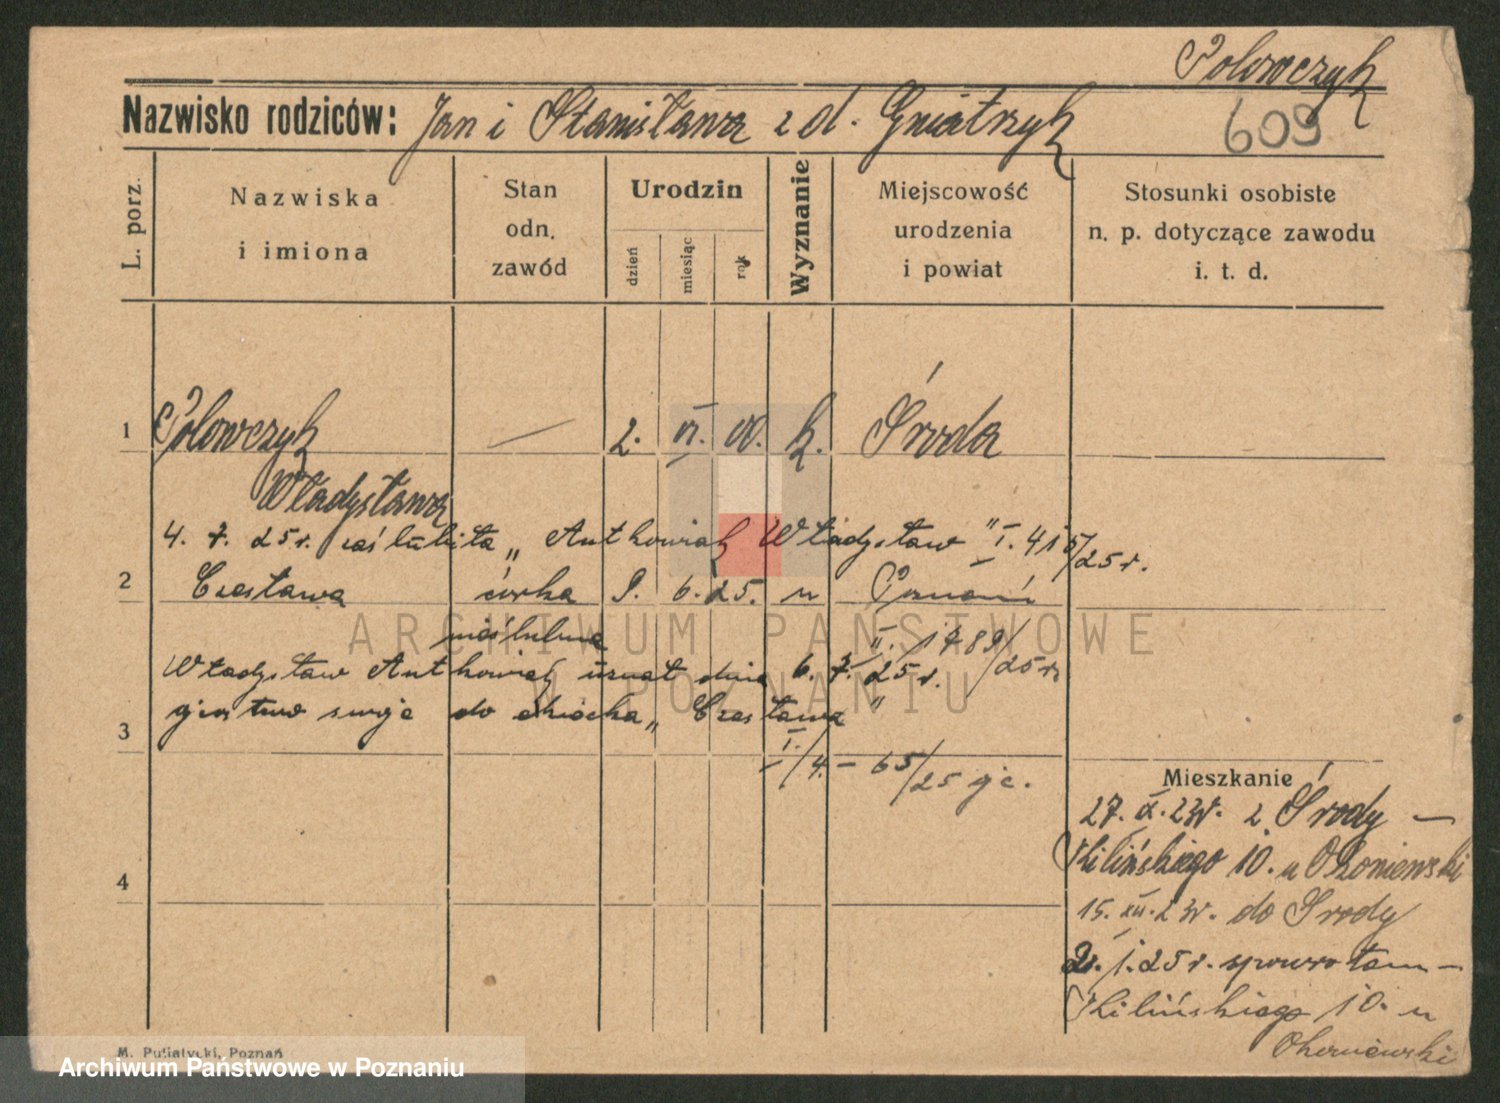 Polowczyk
Nazwisko rodziców: Jan i Stanisława z d. Gniatrzyk
609
L. porz.
Nazwiska i imiona
Stan odn. zawód
Urodzin
dzień
miesiąc
rok
Wyznanie
Miejscowość urodzenia i powiat
Stosunki osobiste n. p. dotyczące zawodu i. t. d.
1 Polowczyk — 2. VI. 00. k. Środa
Władysława
4. 7. 25 r. zaślubiła „Antkowiak Władysław" I. 415/25 r.
2 Czesława córka 9. 6. 25. " Poznań
nieślubna II. 1789/25 r.
Władysław Antkowiak uznał dnia 6. 7. 25 r.
3 swoje do dziecka „Czesława"
I./4. - 65/25
Mieszkanie
27. IX. 23 r. z Środy —
Kilińskiego 10. u Okoniewski
15. XII. 23 r. do Środy
4
1. 25 r. spowrotem —
Kilińskiego 10. u
Okoniewski
M. Putiatycki, Poznań
ARCHIWUM PAŃSTWOWE
W POZNANIU
Archiwum Państwowe w Poznaniu